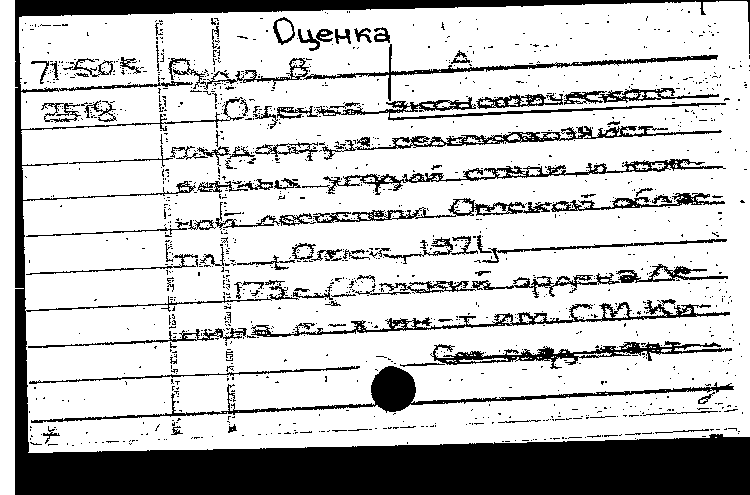 Оценка
71-50к Рудю, В А
2518 Оценка экономического
плодородия сельскохозяйст-
венных угодий степи и юж-
ной лесостепи Омской облас-
ти. [Омск, 1971]
173 с. (Омский ордена Ле-
нина с.-х. ин-т им. С.М. Ки-
См. след. карт.